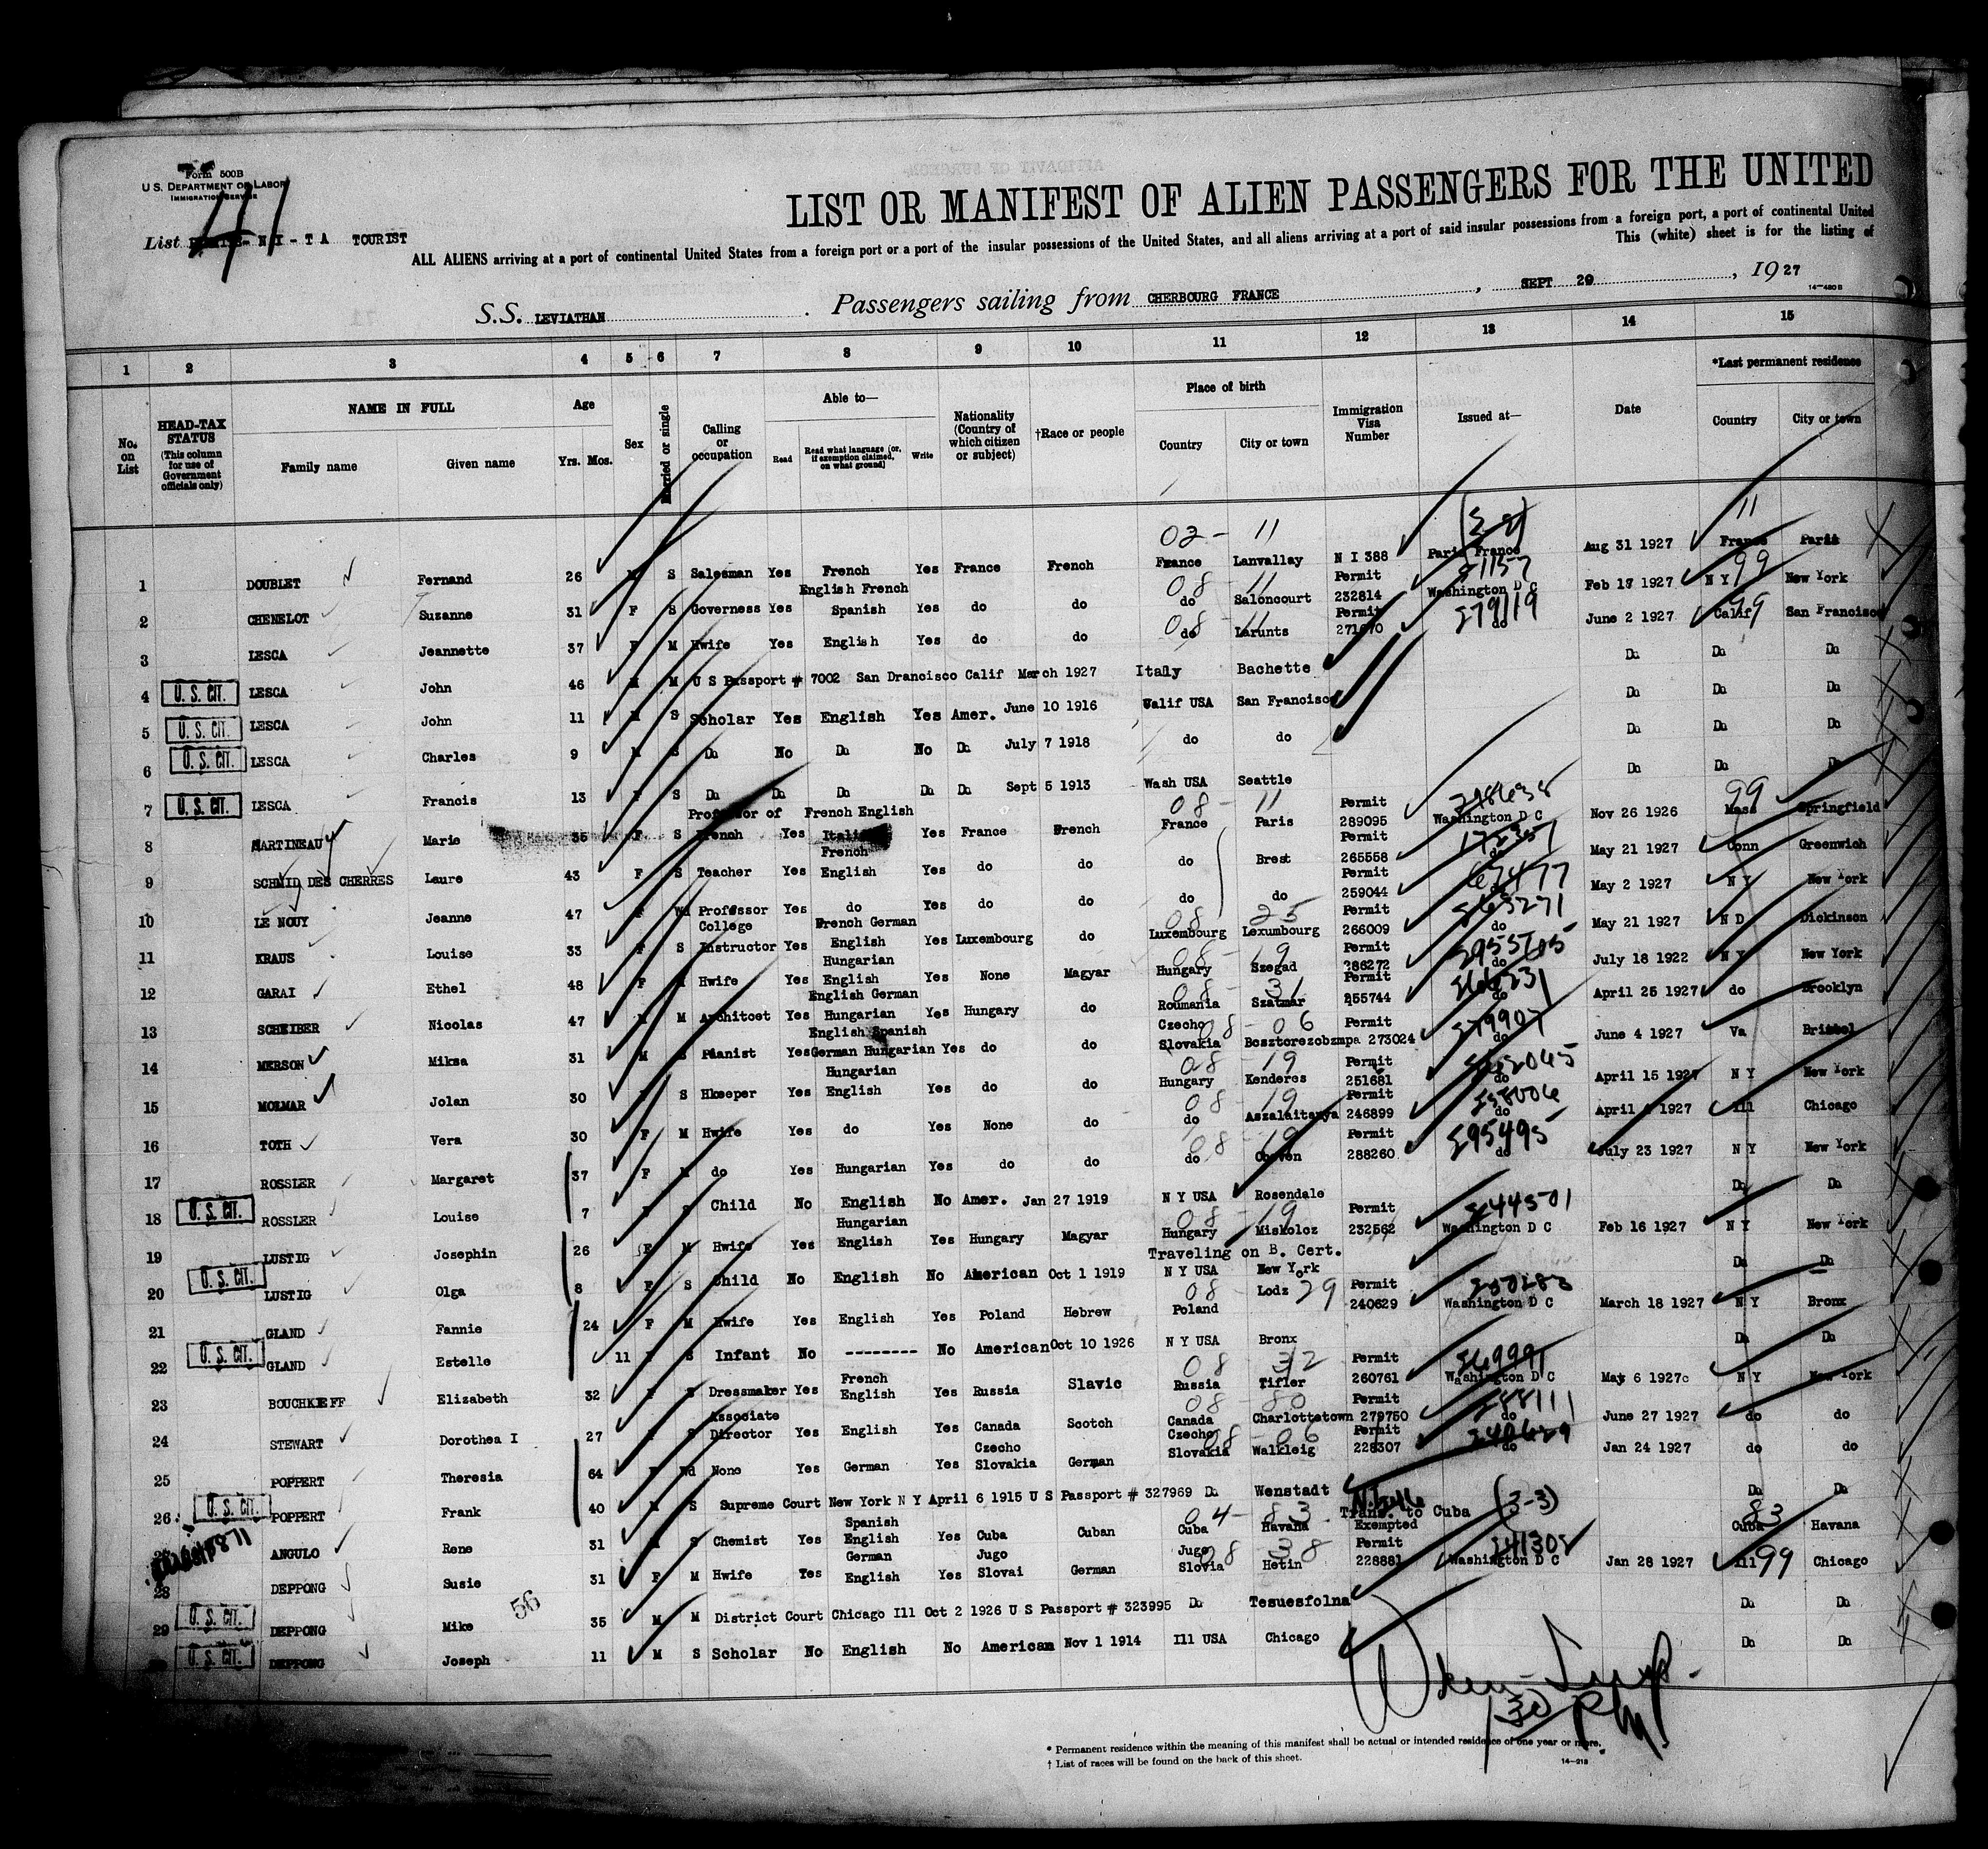 Form 500B
U. S. DEPARTMENT OF LABOR
IMMIGRATION SERVICE
41
List N Y - T A TOURIST
LIST OR MANIFEST OF ALIEN PASSENGERS FOR THE UNITED
ALL ALIENS arriving at a port of continental United States from a foreign port or a port of the insular possessions of the United States, and all aliens arriving at a port of said insular possessions from a foreign port, a port of continental United
This (white) sheet is for the listing of
S.S. LEVIATHAN Passengers sailing from CHERBOURG FRANCE , SEPT 20 , 19 27
14-480 B
1 2 3 4 5 6 7 8 9 10 11 12 13 14 15
No. on List
HEAD-TAX STATUS (This column for use of Government officials only)
NAME IN FULL
Family name Given name
Age
Yrs. Mos.
Sex
Married or single
Calling or occupation
Able to—
Read Read what language (or, if exemption claimed, on what ground) Write
Nationality (Country of which citizen or subject)
†Race or people
Place of birth
Country City or town
Immigration Visa Number
Issued at—
Date
*Last permanent residence
Country City or town
02 - 11 11
1 DOUBLET Fernand 26 M S Salesman Yes French Yes France French France Lanvallay N I 388 Paris France Aug 31 1927 France Paris
English French 08 - 11 Permit 99
2 CHENELOT Suzanne 31 F S Governess Yes Spanish Yes do do do Saloncourt 232814 Washington D C Feb 17 1927 N Y New York
08 - 11 Permit 279119
3 LESCA Jeannette 37 F M Hwife Yes English Yes do do do Larunts do June 2 1927 Calif San Francisco
4 U. S. CIT. LESCA John 46 M M U S Passport # 7002 San Drancisco Calif March 1927 Italy Bachette Do Do Do
5 U. S. CIT. LESCA John 11 M S Scholar Yes English Yes Amer. June 10 1916 Calif USA San Francisco Do Do Do
6 U. S. CIT. LESCA Charles 9 M S Do No Do No Do July 7 1918 do do Do Do Do
7 U. S. CIT. LESCA Francis 13 F S Do Do Do Do Do Sept 5 1913 Wash USA Seattle Do Do Do
Professor of French English 08 - 11 Permit 99
8 MARTINEAU Marie 35 F S French Yes Yes France French France Paris 289095 Washington D C Nov 26 1926 Mass Springfield
French Permit
9 SCHMID DES CHERRES Laure 43 F S Teacher Yes English Yes do do do Brest 265558 do May 21 1927 Conn Greenwich
Permit
10 LE NOUY Jeanne 47 F Wd Professor Yes do Yes do do do do 259044 do May 2 1927 N Y New York
College French German 08 - 25 Permit
11 KRAUS Louise 33 F S Instructor Yes English Yes Luxembourg do Luxembourg Lexumbourg 266009 do May 21 1927 N D Dickinson
Hungarian 08 - 19 Permit
12 GARAI Ethel 48 F M Hwife Yes English Yes None Magyar Hungary Szegad 286272 do July 18 1922 N Y New York
English German 08 - 31 Permit
13 SCHEIBER Nicolas 47 M M Architcet Yes Hungarian Yes Hungary do Roumania Szatmar 255744 do April 25 1927 do Brooklyn
English Spanish Czecho 08 - 06 Permit 279907
14 MERSON Miksa 31 M S Pianist Yes German Hungarian Yes do do Slovakia Bosztorezobzmpa 273024 do June 4 1927 Va Bristol
Hungarian 08 - 19 Permit
15 MOLMAR Jolan 30 F S Hkeeper Yes English Yes do do Hungary Kenderes 251681 do April 15 1927 N Y New York
08 - 19 Permit
16 TOTH Vera 30 F M Hwife Yes do Yes None do do Aszalaitanya 246899 do April 1927 Ill Chicago
08 - 19 Permit 295495
17 ROSSLER Margaret 37 F M do Yes Hungarian Yes do do do 288260 do July 23 1927 N Y New York
18 U. S. CIT. ROSSLER Louise 7 F S Child No English No Amer. Jan 27 1919 N Y USA Rosendale Do Do
Hungarian 08 - 19 Permit 244501
19 LUSTIG Josephin 26 F M Hwife Yes English Yes Hungary Magyar Hungary Miskoloz 232562 Washington D C Feb 16 1927 N Y New York
Traveling on B. Cert.
20 U. S. CIT. LUSTIG Olga 8 F S Child No English No American Oct 1 1919 N Y USA New York Do Do
08 - 29 Permit
21 GLAND Fannie 24 F M Hwife Yes English Yes Poland Hebrew Poland Lodz 240629 Washington D C March 18 1927 N Y Bronx
22 U. S. CIT. GLAND Estelle 11 F S Infant No -------- No American Oct 10 1926 N Y USA Bronx Do Do
French 08 - 32 Permit 269991
23 BOUCHKIEFF Elizabeth 32 F S Dressmaker Yes English Yes Russia Slavic Russia Tifler 260761 Washington D C May 6 1927 N Y New York
Associate 08 - 80 Permit 288111
24 STEWART Dorothea I 27 F S Director Yes English Yes Canada Scotch Canada Charlottetown 279750 do June 27 1927 do do
Czecho Czecho 08 - 06 Permit 240629
25 POPPERT Theresia 64 F Wd None Yes German Yes Slovakia German Slovakia Walkleig 228307 do Jan 24 1927 do do
26 U. S. CIT. POPPERT Frank 40 M S Supreme Court New York N Y April 6 1915 U S Passport # 327969 Do Wenstadt Do Do
Spanish 04 - 83 Trans. to Cuba (3-3) 83
ANGULO Rene 31 M S Chemist Yes English Yes Cuba Cuban Cuba Havana Exempted Cuba Havana
German Jugo Jugo 08 - 38 Permit 241308
28 DEPPONG Susie 31 F M Hwife Yes English Yes Slovai German Slovia Hetin 228881 Washington D C Jan 28 1927 Ill 99 Chicago
56
29 U. S. CIT. DEPPONG Mike 35 M M District Court Chicago Ill Oct 2 1926 U S Passport # 323995 Do Tesuesfolna Do Do
U. S. CIT. DEPPONG Joseph 11 M S Scholar No English No American Nov 1 1914 Ill USA Chicago Do Do
* Permanent residence within the meaning of this manifest shall be actual or intended residence of one year or more.
† List of races will be found on the back of this sheet.
14-218